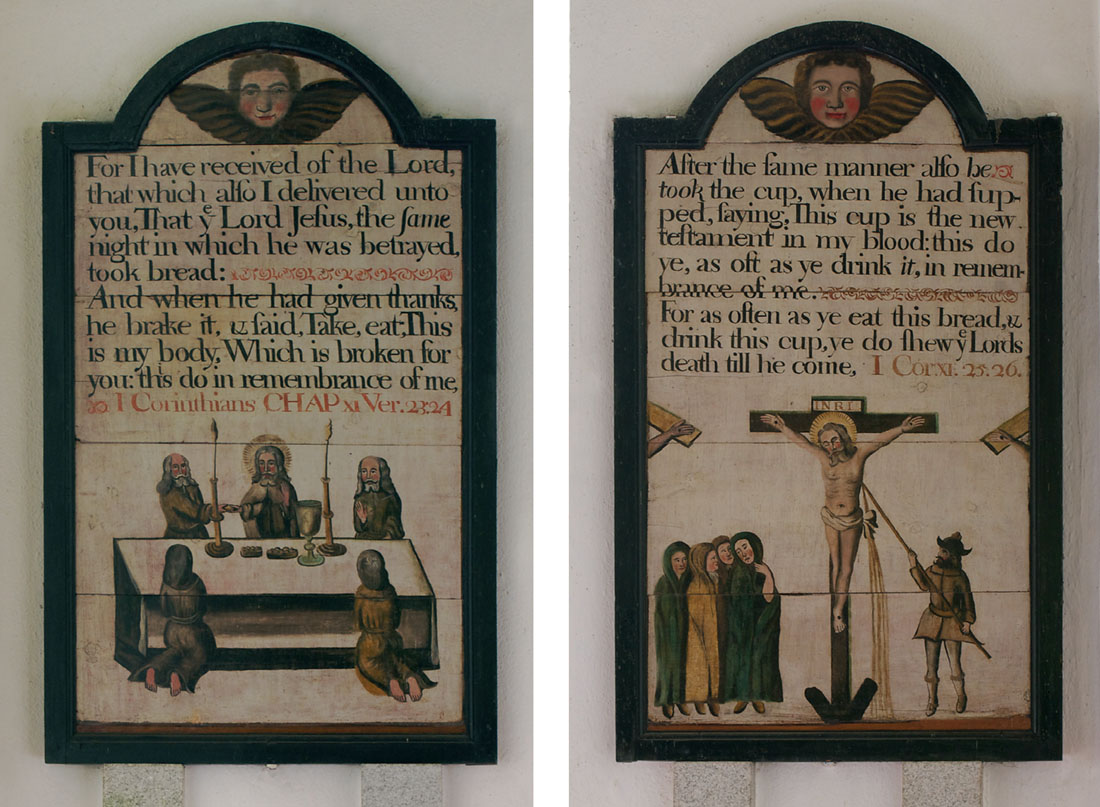 For I have received of the Lord,
that which alſo I delivered unto
you, That yͤ Lord Jeſus, the ſame
night in which he was betrayed,
took bread:
And when he had given thanks,
he brake it, & ſaid, Take, eat; This
is my body, Which is broken for
you: this do in remembrance of me,
I Corinthians CHAP XI Ver. 23:24
After the ſame manner alſo he
took the cup, when he had ſup-
ped, ſaying; This cup is the new
teſtament in my blood: this do
ye, as oft as ye drink it, in remem-
brance of me.
For as often as ye eat this bread, &
drink this cup, ye do ſhew yͤ Lords
death till he come, I Cor. XI. 25: 26.
INRI